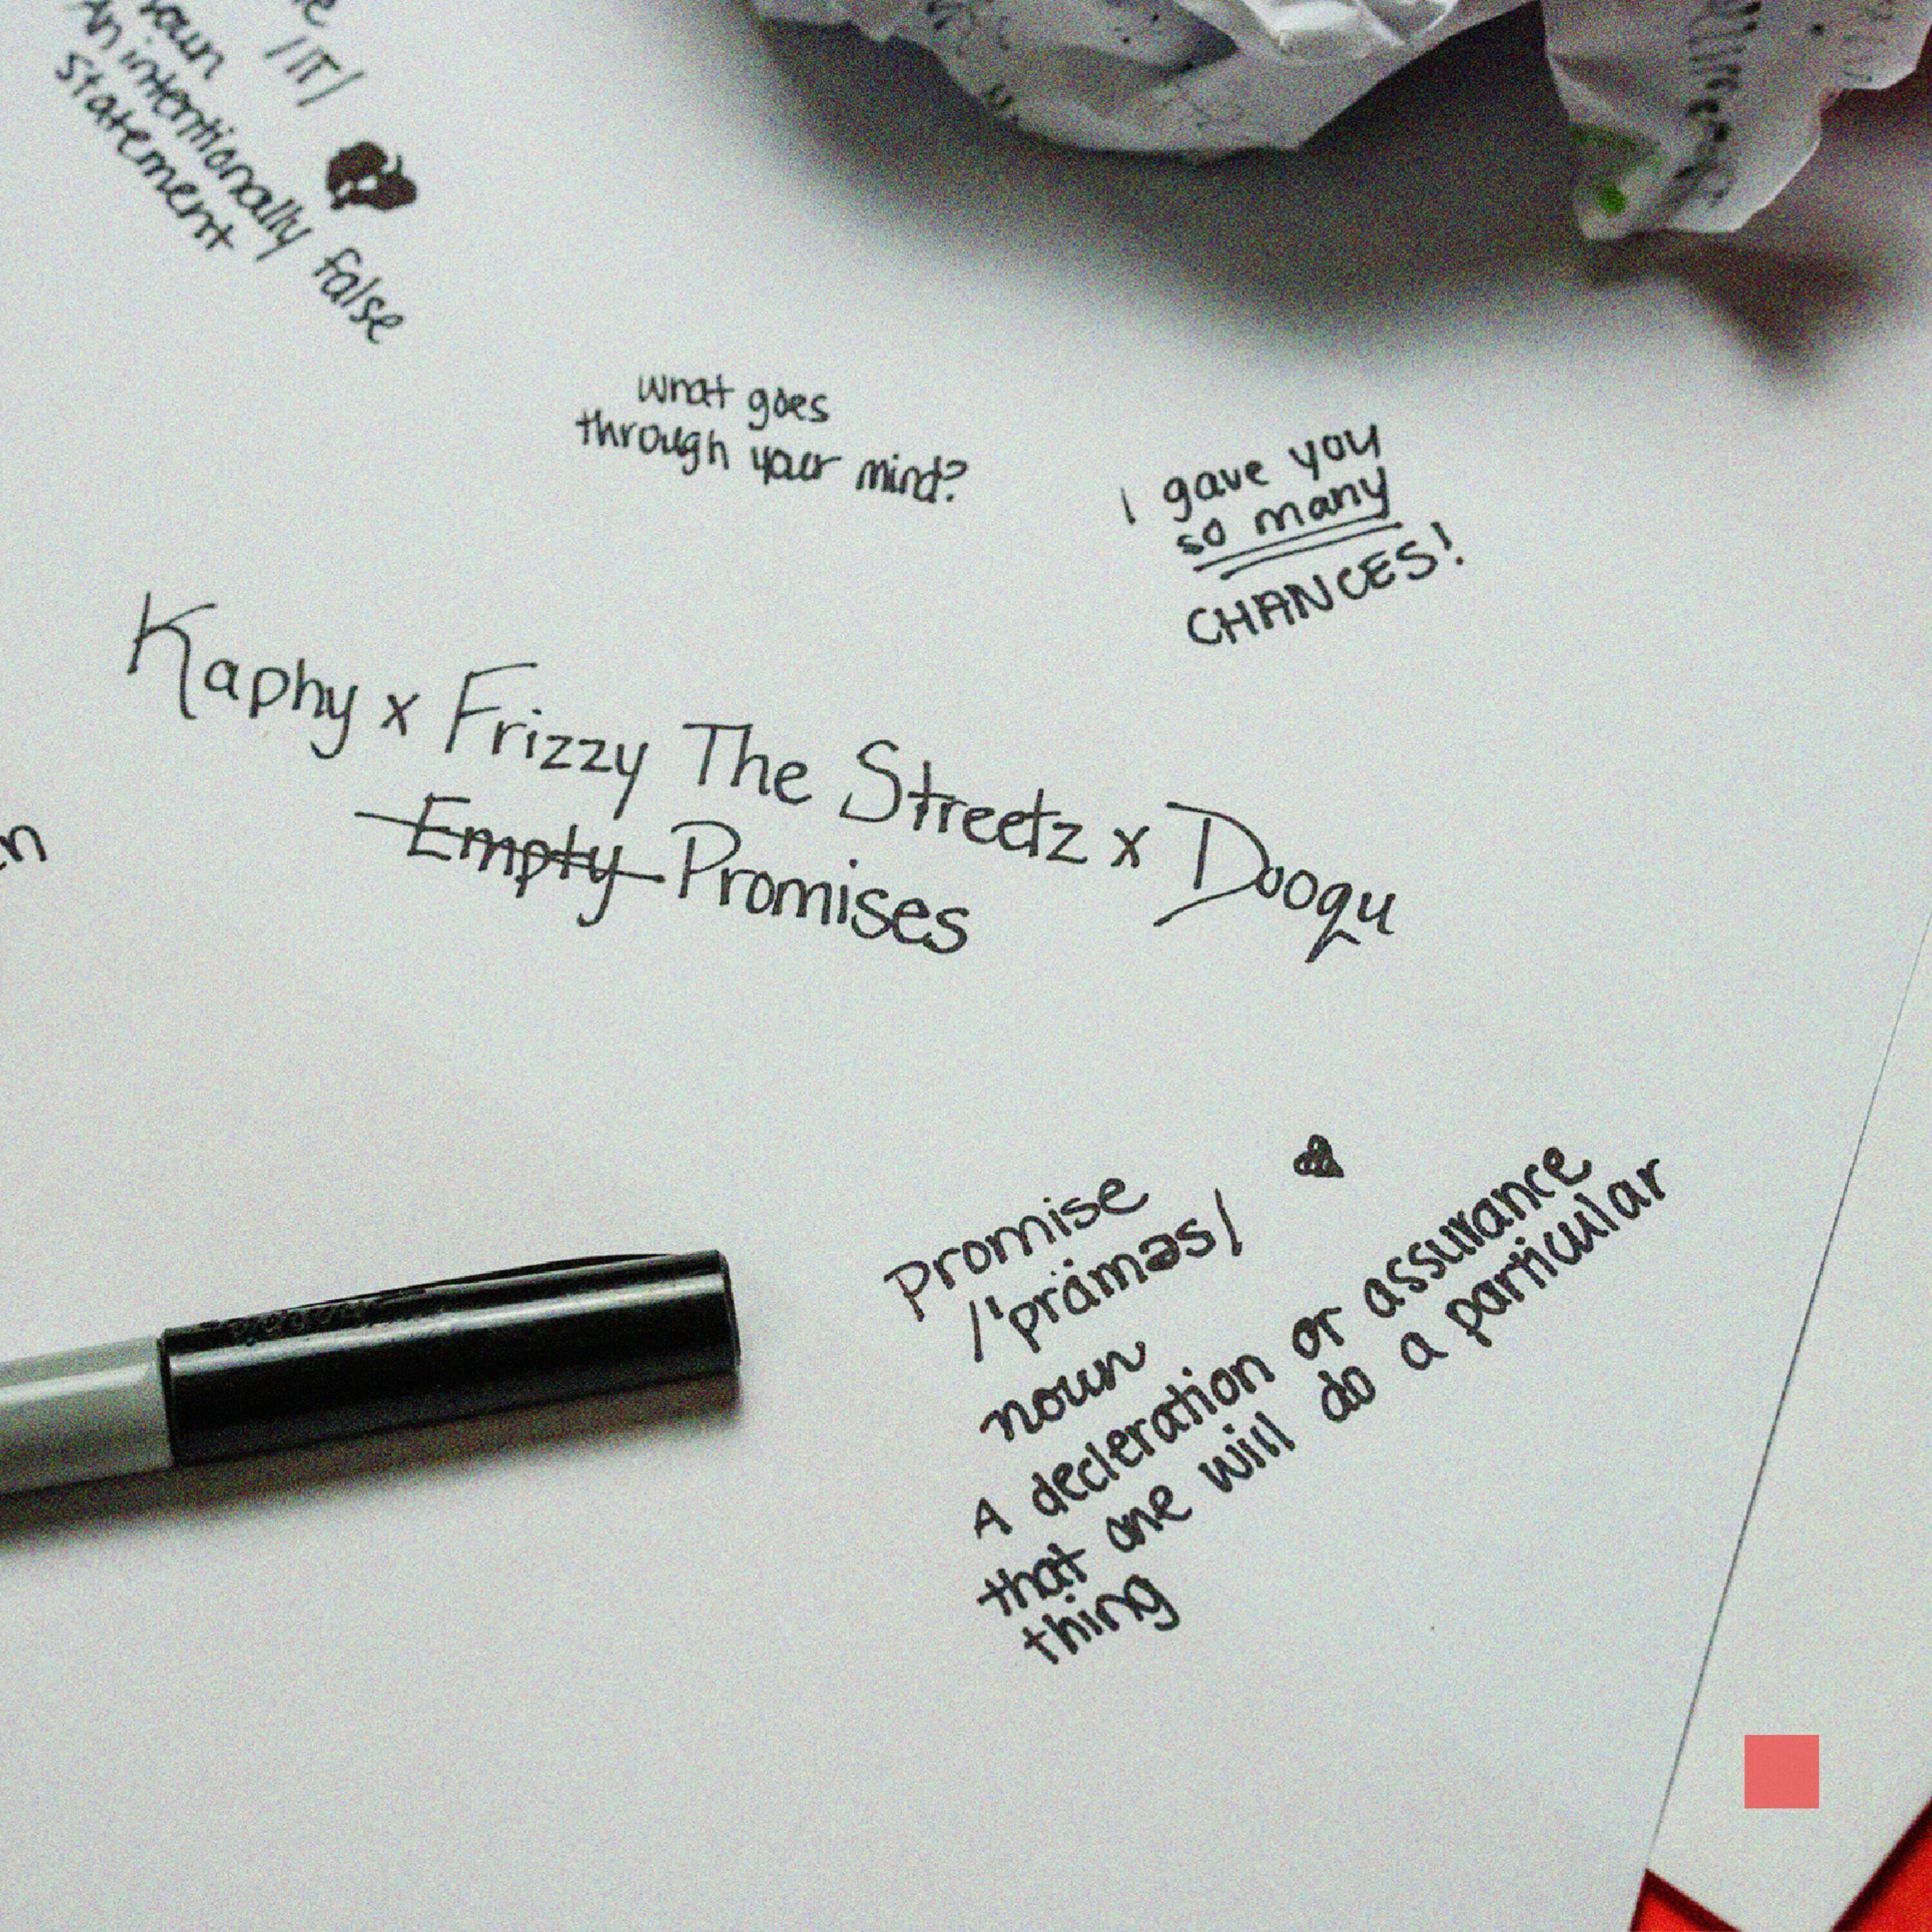 noun
An intentionally false
statement
what goes
through your mind?
I gave you
so many
CHANCES!
Kaphy x Frizzy The Streetz x Dooqu
Empty Promises
Promise
/'prämǝs/
noun
A decleration or assurance
that one will do a particular
thing